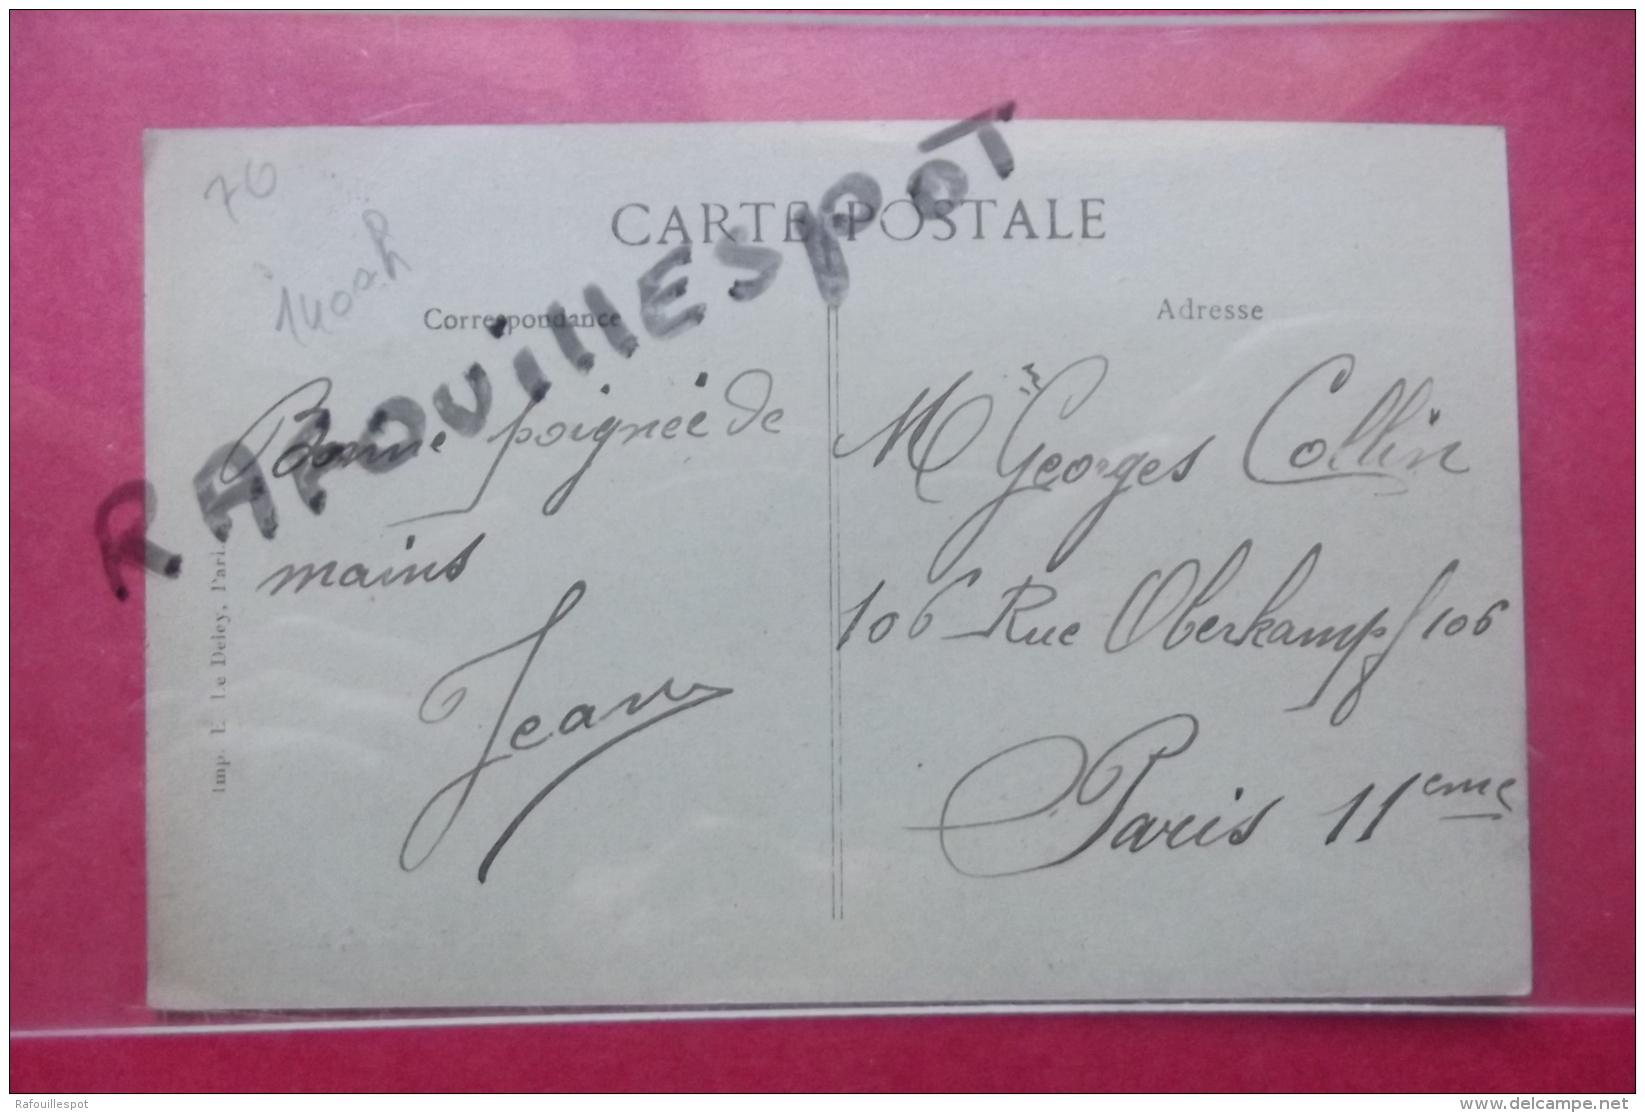 76
CARTE POSTALE
RAFOUILLESPOT
Correspondance
Adresse
Bonne poignée de
mains
Jean
Mr Georges Collin
106 Rue Oberkampf 106
Paris 11eme
Imp. E. Le Deley, Paris.
Rafouillespot
www.delcampe.net